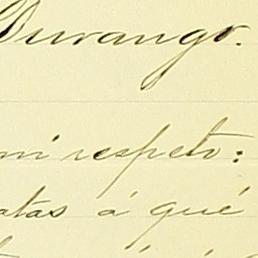 Durango.
mi respeto:
atas á qué